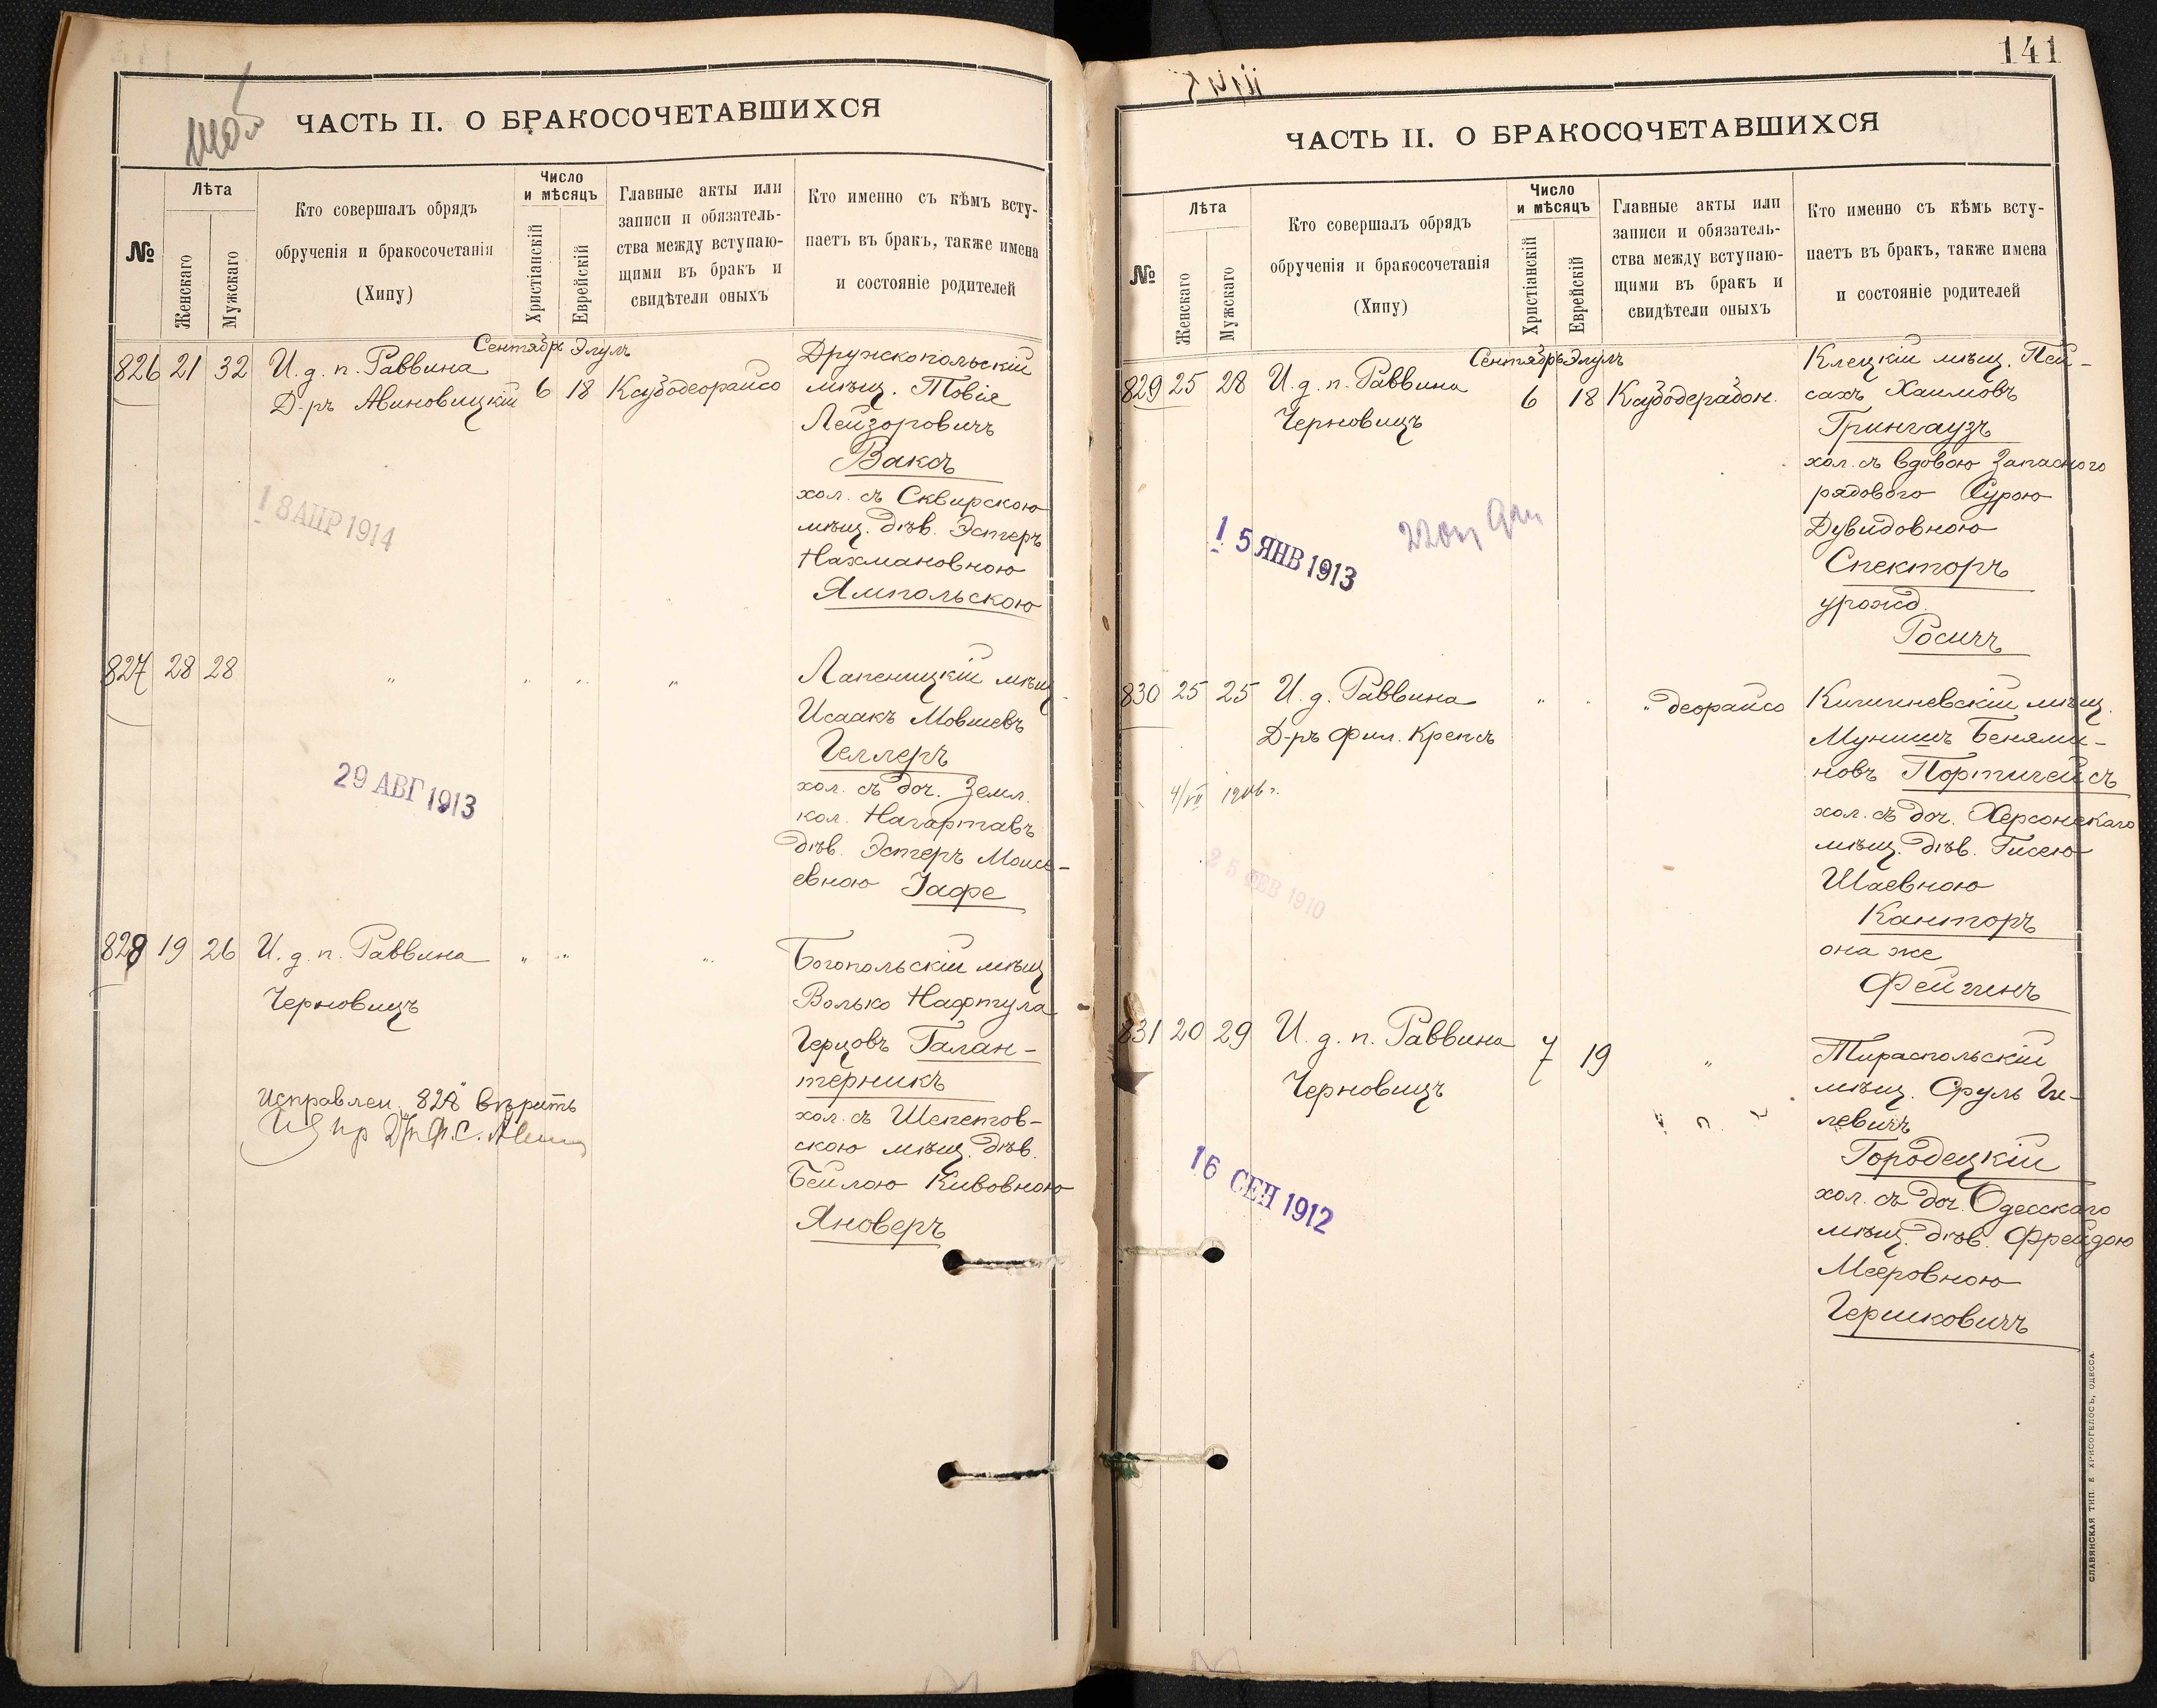 ЧАСТЬ II. О БРАКОСОЧЕТАВШИХСЯ
№
Лѣта
Женскаго
Мужскаго
Кто совершалъ обрядъ
обрученія и бракосочетанія
(Хипу)
Число
и мѣсяцъ
Христіанскій
Еврейскій
Главные акты или
записи и обязатель-
ства между вступаю-
щими въ бракъ и
свидѣтели оныхъ
Кто именно съ кѣмъ всту-
паетъ въ бракъ, также имена
и состояніе родителей
Сентябрь Элулъ
826 21 32 И. д. п. Раввина
Д-ръ Авиновицкій 6 18
Дружкопольскій
мѣщ. Товія
Лейзоровичъ
Ваксъ
хол. съ Сквирскою
мѣщ. дѣв. Эстеръ
Нахмановною
Ямпольскою
18 АПР 1914
827 28 28 " " " "
Лапеницкій мѣщ.
Исаакъ Мовшевъ
Геллеръ
хол. съ доч. Земл.
кол. Нагартавъ
дѣв. Эстеръ Моисе-
евною Іафе
29 АВГ 1913
828 19 26 И. д. п. Раввина " " "
Черновицъ
Богопольскій мѣщ
Волько Нафтула
Герцовъ Галан-
терникъ
хол. съ Шепетов-
скою мѣщ. дѣв.
Бейлою Кивовною
Яноверъ
Исправлен. 828 вѣрить
141
ЧАСТЬ II. О БРАКОСОЧЕТАВШИХСЯ
№
Лѣта
Женскаго
Мужскаго
Кто совершалъ обрядъ
обрученія и бракосочетанія
(Хипу)
Число
и мѣсяцъ
Христіанскій
Еврейскій
Главные акты или
записи и обязатель-
ства между вступаю-
щими въ бракъ и
свидѣтели оныхъ
Кто именно съ кѣмъ всту-
паетъ въ бракъ, также имена
и состояніе родителей
Сентябрь Элулъ
829 25 28 И. д. п. Раввина 6 18
Черновицъ
Клецкій мѣщ. Пей-
сахъ Хаимовъ
Грингаузъ
хол. съ вдовою Запасного
рядового Сурою
Дувидовною
Спекторъ
урожд.
Росичъ
15 ЯНВ 1913
830 25 25 И. д. Раввина " " " деорайсо
Д-ръ Фил. Крепсъ
Кишиневскій мѣщ.
Мунишъ Бенями-
новъ Портигейсъ
хол. съ доч. Херсонскаго
мѣщ. дѣв. Гисею
Шаевною
Канторъ
она же
Фейгинъ
4/VII 1906 г.
25 ФЕВ 1910
831 20 29 И. д. п. Раввина 7 19 "
Черновицъ
Тираспольскій
мѣщ. Сруль Ги-
левичъ
Городецкій
хол. съ доч. Одесскаго
мѣщ. дѣв. Фрейдою
Мееровною
Гершковичъ
16 СЕН 1912
СЛАВЯНСКАЯ ТИП. Е. ХРИСОГЕЛОСЪ, ОДЕССА.